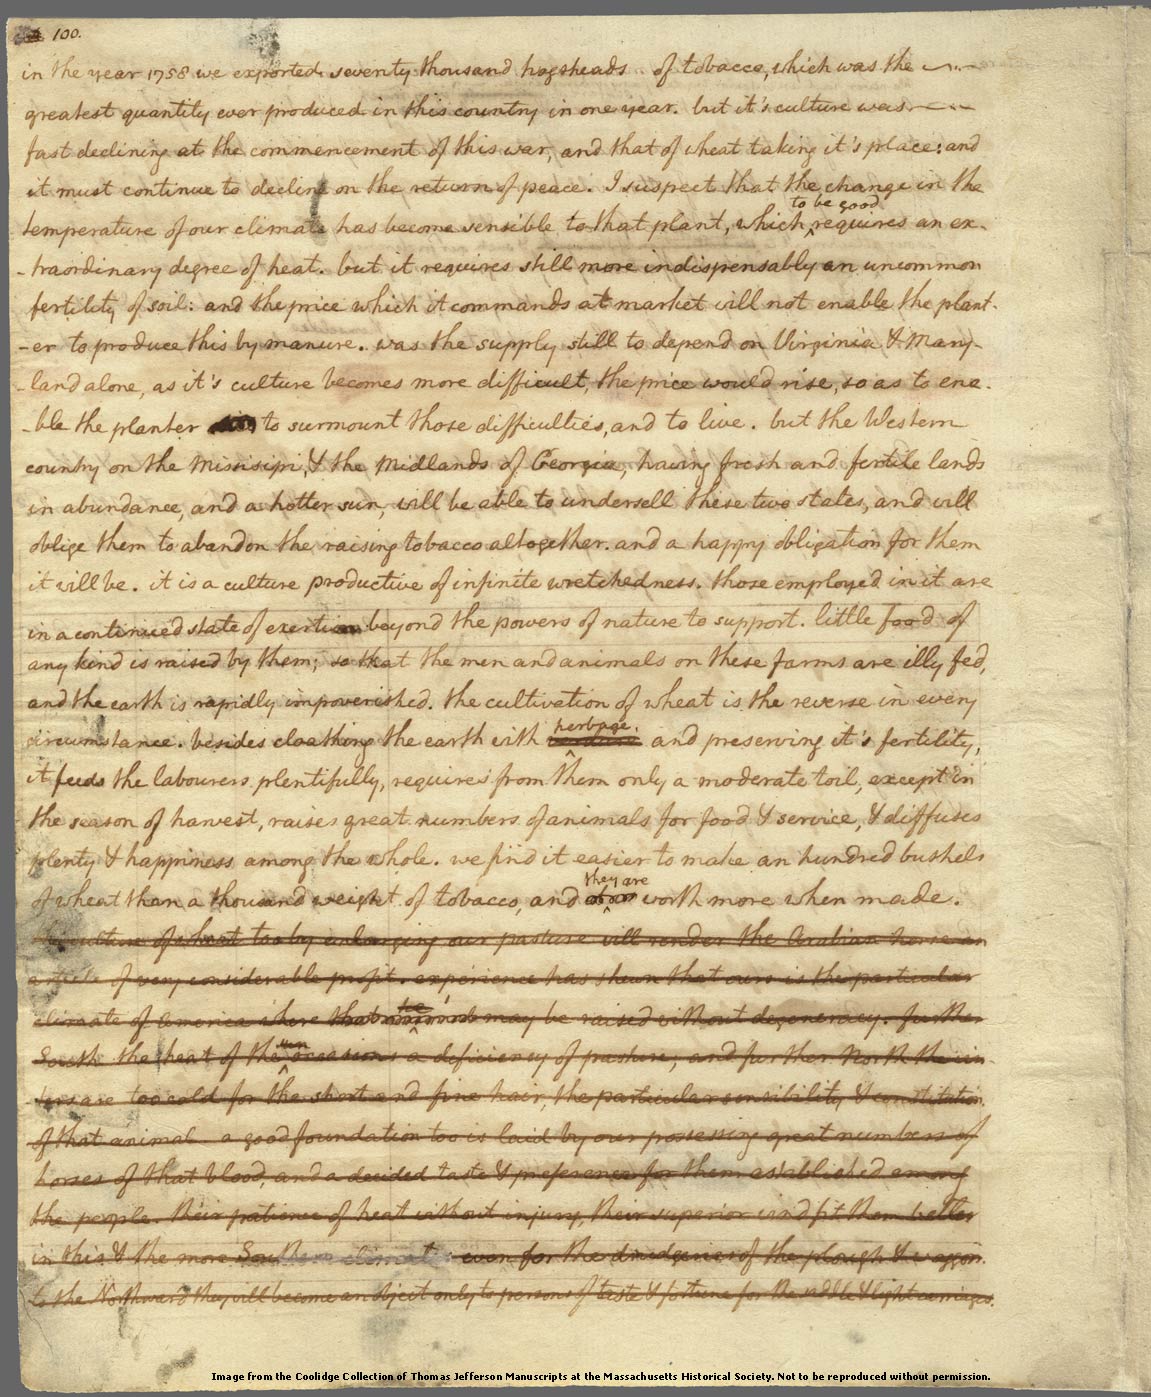 100.
in the year 1758 we exported seventy thousand hogsheads of tobacco, which was the
greatest quantity ever produced in this country in one year. but it's culture was
fast declining at the commencement of this war, and that of wheat taking it's place: and
it must continue to decline on the return of peace. I suspect that the change in the
to be good
temperature of our climate has become sensible to that plant, which ^ requires an ex-
-traordinary degree of heat. but it requires still more indispensably an uncommon
fertility of soil: and the price which it commands at market will not enable the plant-
-er to produce this by manure. was the supply still to depend on Virginia & Mary-
-land alone, as it's culture becomes more difficult, the price would rise, so as to ena-
-ble the planter to surmount those difficulties, and to live. but the Western
country on the Missisipi, & the Midlands of Georgia, having fresh and fertile lands
in abundance, and a hotter sun, will be able to undersell these two states, and will
oblige them to abandon the raising tobacco altogether. and a happy obligation for them
it will be. it is a culture productive of infinite wretchedness. those employed in it are
in a continued state of exertion beyond the powers of nature to support. little food of
any kind is raised by them; so that the men and animals on these farms are illy fed,
and the earth is rapidly impoverished. the cultivation of wheat is the reverse in every
herbage.
circumstance. besides cloathing the earth with ^ and preserving it's fertility,
it feeds the labourers plentifully, requires from them only a moderate toil, except in
the season of harvest, raises great numbers of animals for food & service, & diffuses
plenty & happiness among the whole. we find it easier to make an hundred bushels
they are
of wheat than a thousand weight of tobacco, and ^ worth more when made.
culture of wheat too by enlarging our pasture will render the Arabian horse an
article of very considerable profit. experience has shewn that ours is the particular
he
climate of America where may be raised without degeneracy. further
sun
South the heat of the ^ occasions a deficiency of pasture, and further North the win
ters are too cold for the short and fine hair, the particular sensibility & constitution
of that animal a good foundation too is laid by our possessing great numbers of
horses of that blood, and a decided taste & preference for them established among
the people. their patience of heat without injury, their superior wind fit them better
in this & the more Southern climates even for the drudgeries of the plough & waggon.
to the Northward they will become an object only to persons of taste & fortune for the saddle & light carriages.
Image from the Coolidge Collection of Thomas Jefferson Manuscripts at the Massachusetts Historical Society. Not to be reproduced without permission.